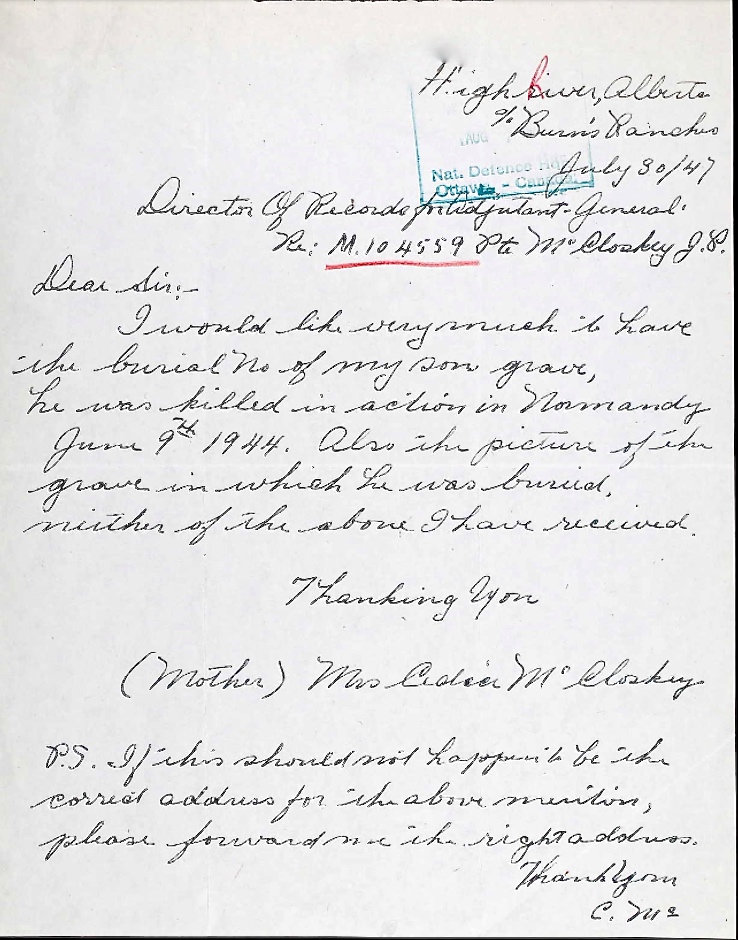 High River, Alberta
c/o Burns Ranches
AUG
Nat. Defence Hdq.
Ottawa - Canada
July 30/47
Director Of Records for Adjutant-General.
Re: M.104559 Pte McCloskey J.P.
Dear Sir:-
I would like very much to have
the burial No of my son grave,
he was killed in action in Normandy
June 9th 1944. Also the picture of the
grave in which he was buried,
neither of the above I have received.
Thanking You
(Mother) Mrs McCloskey
P.S. If this should not happen to be the
correct address for the above mention,
please forward me the right address.
Thank You
C. Mc